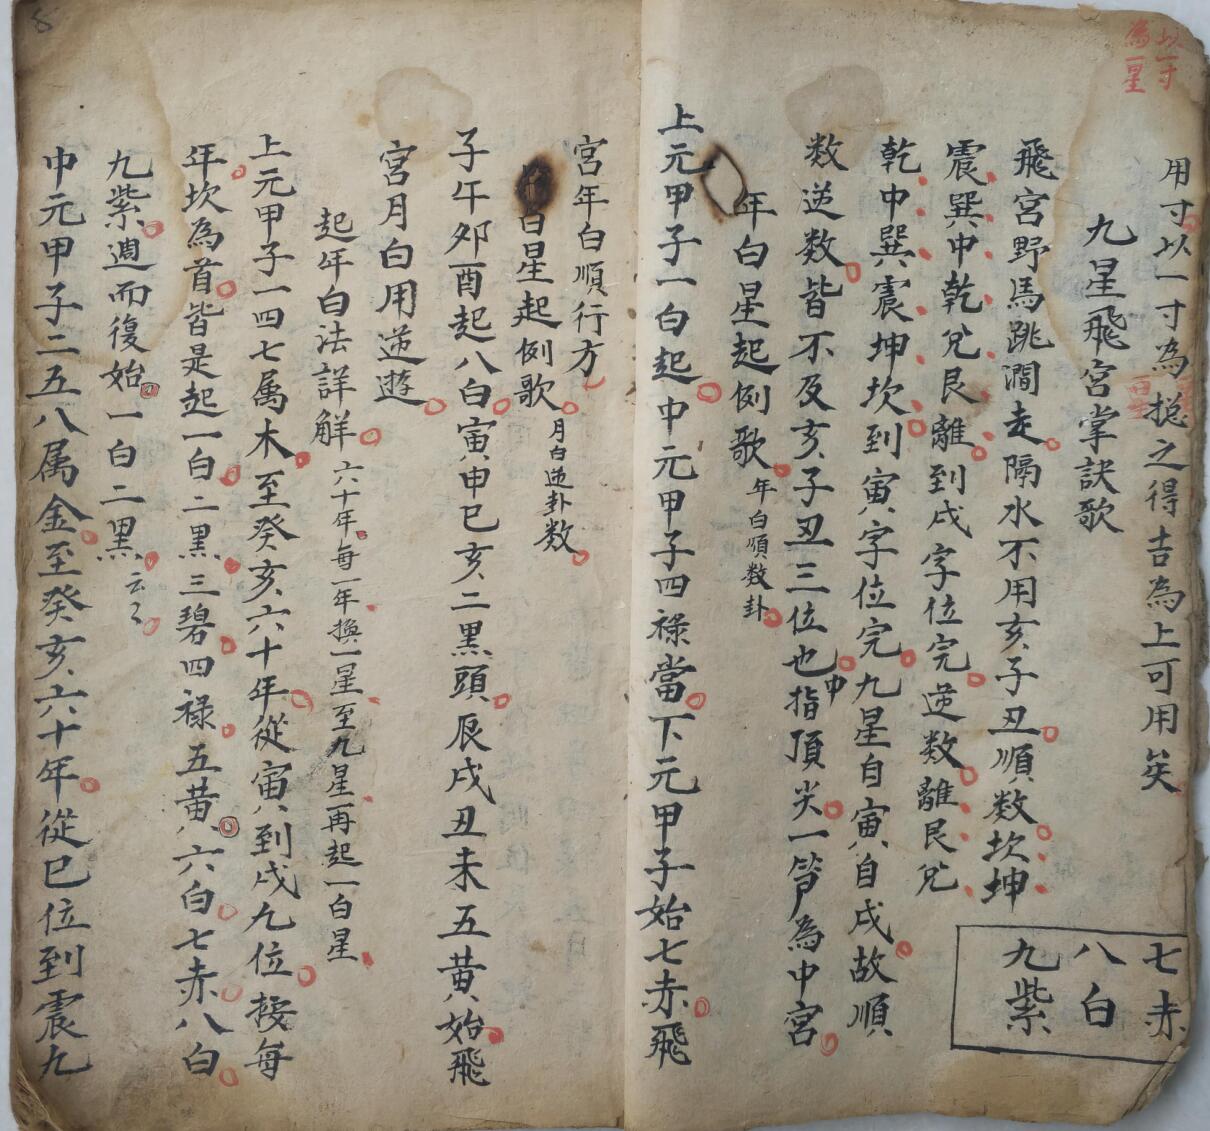 以寸
為一星
用寸以一寸為捴之得吉為上可用矣
九星飛宮掌訣歌
飛宮野馬跳澗走隔水不用亥子丑順数坎坤
震巽中乾兌艮離到戌字位完逆数離艮兌
乾中巽震坤坎到寅字位完九星自寅自戌故順
数逆数皆不及亥子丑三位也中指頂尖一節為中宮
年白星起例歌 年白順数卦
上元甲子一白起中元甲子四禄當下元甲子始七赤飛
七赤
八白
九紫
宮年白順行方
白星起例歌 月白逆卦数
子午夘酉起八白寅申巳亥二黑頭辰戌丑未五黄始飛
宮月白用逆遊
起年白法詳解 六十年每一年換一星至九星再起一白星
上元甲子一四七属木至癸亥六十年從寅到戌九位接每
年坎為首皆是起一白二黑三碧四禄五黄六白七赤八白
九紫週而復始一白二黑云々
中元甲子二五八属金至癸亥六十年從巳位到震九
8